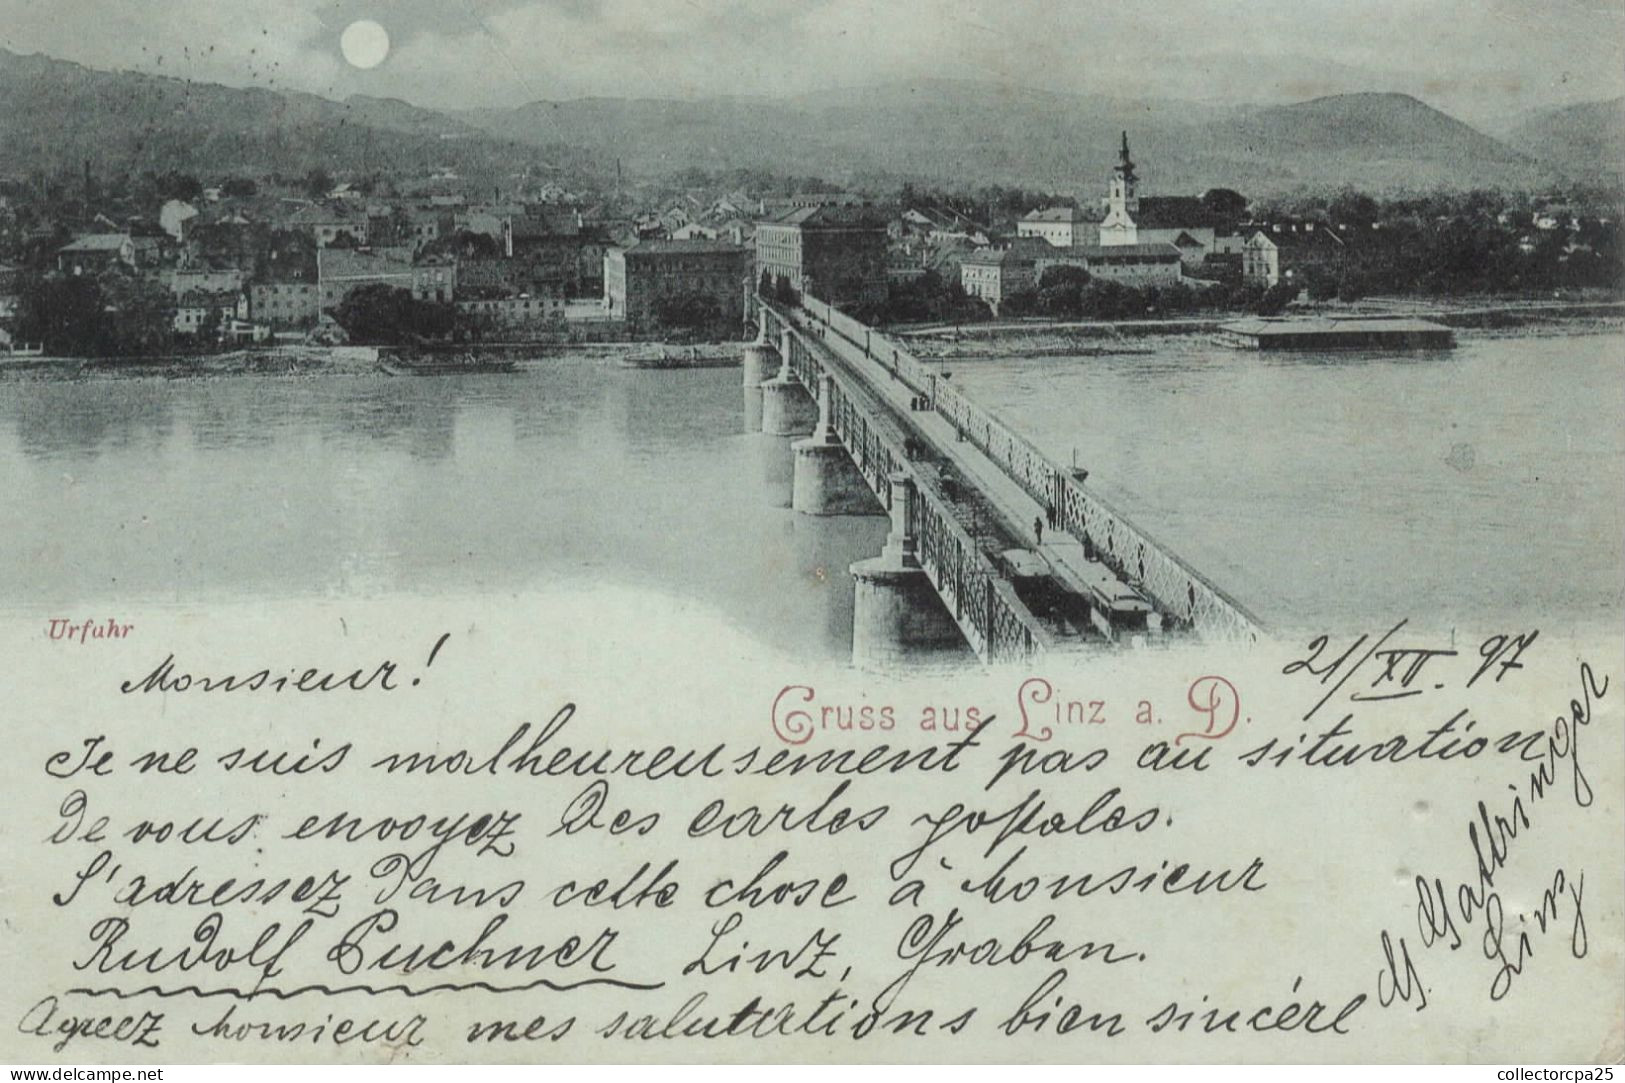 Urfahr
Gruss aus Linz a. D.
21/XII. 97
Monsieur!
Je ne suis malheureusement pas au situation
de vous envoyez des cartes postales.
S'adressez dans cette chose à Monsieur
Rudolf Puchner Linz, Graben.
Agreez Monsieur mes salutations bien sincére
Linz
delcampe.net
collectorcpa25